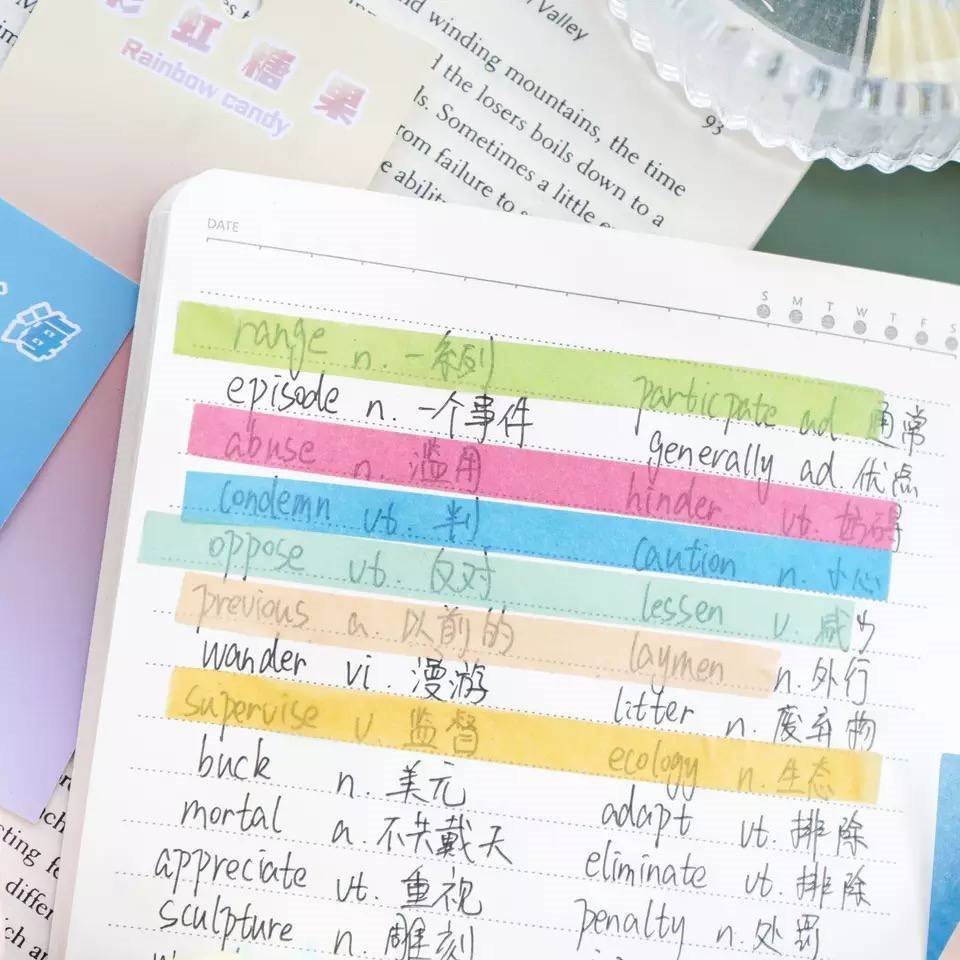 彩虹糖果
Rainbow candy
Valley
nd winding mountains, the time
the losers boils down to a
ls. Sometimes a little
rom failure to
e ability
93
海
DATE
S M T W T F S
range n. 一系列
participate ad 通常
episode n. 一个事件
generally ad. 优点
abuse n. 滥用
hinder vt. 妨碍
condemn vt. 判
caution n. 小心
oppose vt. 反对
lessen v. 减少
previous a. 以前的
laymen n. 外行
wander vi. 漫游
litter n. 废弃物
supervise v. 监督
ecology n. 生态
buck n. 美元
adapt vt. 排除
mortal a. 不共戴天
eliminate vt. 排除
appreciate vt. 重视
penalty n. 处罚
sculpture n. 雕刻